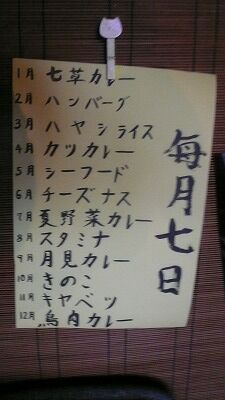 毎月七日
1月 七草カレー
2月 ハンバーグ
3月 ハヤシライス
4月 カツカレー
5月 シーフード
6月 チーズナス
7月 夏野菜カレー
8月 スタミナ
9月 月見カレー
10月 きのこ
11月 キャベツ
12月 鳥肉カレー